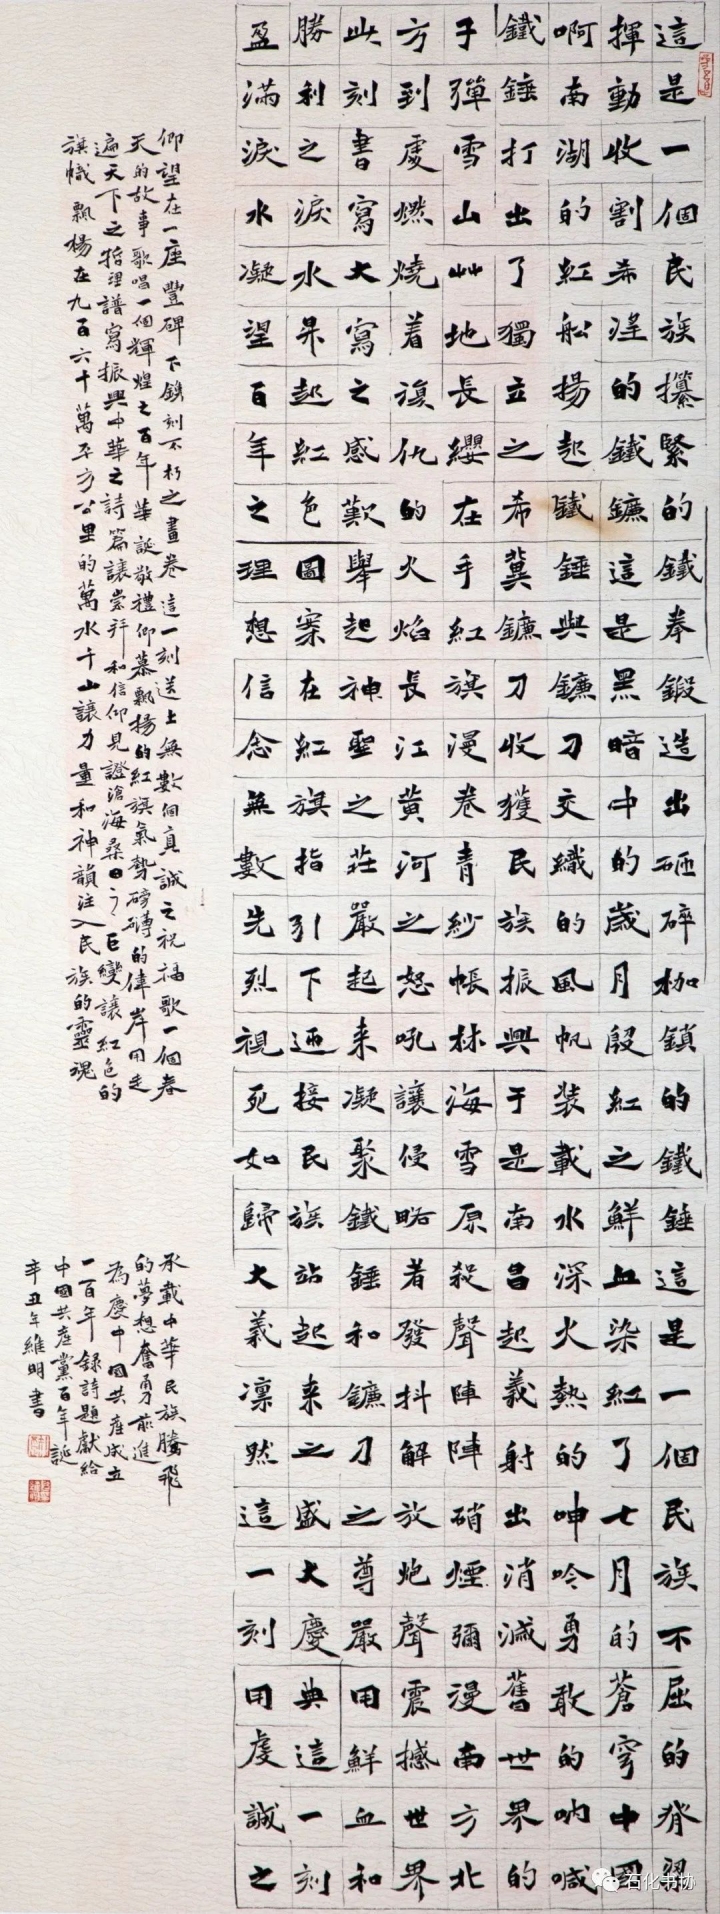 這是一個民族攥緊的鐵拳鍛造出砸碎枷鎖的鐵錘這是一個民族不屈的脊
揮動收割希望的鐵鐮這是黑暗中的歲月殷紅之鮮血染紅了七月的蒼穹中國
啊南湖的紅船揚起鐵錘與鐮刀交織的風帆裝載水深火熱的呻吟勇敢的吶喊
鐵錘打出了獨立之希冀鐮刀收獲民族振興于是南昌起義射出消滅舊世界的
子彈雪山艸地長纓在手紅旗漫卷青紗帳林海雪原殺聲陣陣硝煙彌漫南方北
方到處燃燒着復仇的火焰長江黃河之怒吼讓侵略者發抖解放炮聲震撼世界
此刻書寫大寫之感歎舉起神聖之莊嚴起来凝聚鐵錘和鐮刀之尊嚴用鮮血和
勝利之淚水昇起紅色圖案在紅旗指引下迎接民族站起来之盛大慶典這一刻
盈滿淚水凝望百年之理想信念無數先烈視死如歸大義凜然這一刻用虔誠之
仰望在一座豐碑下鐫刻不朽之畫卷這一刻送上無數個真誠之祝福歌一個春
天的故事歌唱一個輝煌之百年華誕敬禮仰慕飄揚的紅旗氣勢磅礴的偉岸用走
遍天下之哲理譜寫振興中華之詩篇讓崇拜和信仰見證滄海桑田之巨變讓紅色的
旗幟飄楊在九百六十萬平方公里的萬水千山讓力量和神韻注入民族的靈魂
承載中華民族騰飛
的夢想奮勇前進
為慶中國共產成立
一百年錄詩題獻給
中國共產黨百年誕
辛丑年維明書
石化书协